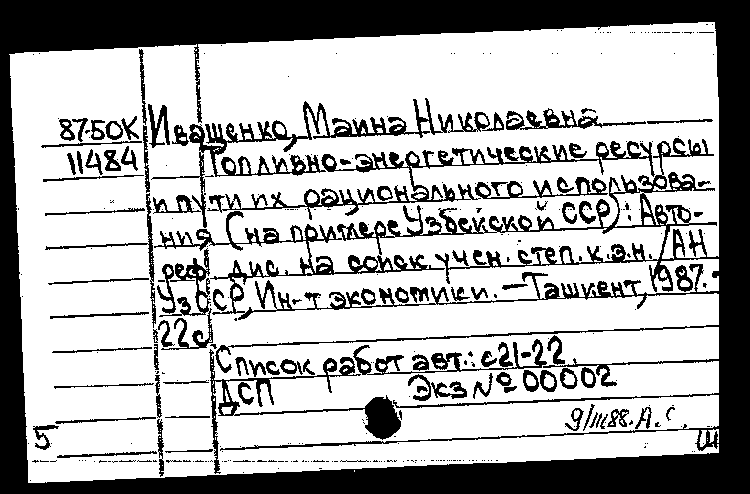 87-5ОК Иващенко, Маина Николаевна
11484 Топливно-энергетические ресурсы
и пути их рационального использова-
ния (на примере Узбекской ССР): Авто-
реф. дис. на соиск. учен. степ. к.э.н. /АН
УзССР, Ин-т экономики. — Ташкент, 1987. -
22с
Список работ авт.: с21-22.
ДСП Экз № 00002
9/III88. А.С.
5 Ш